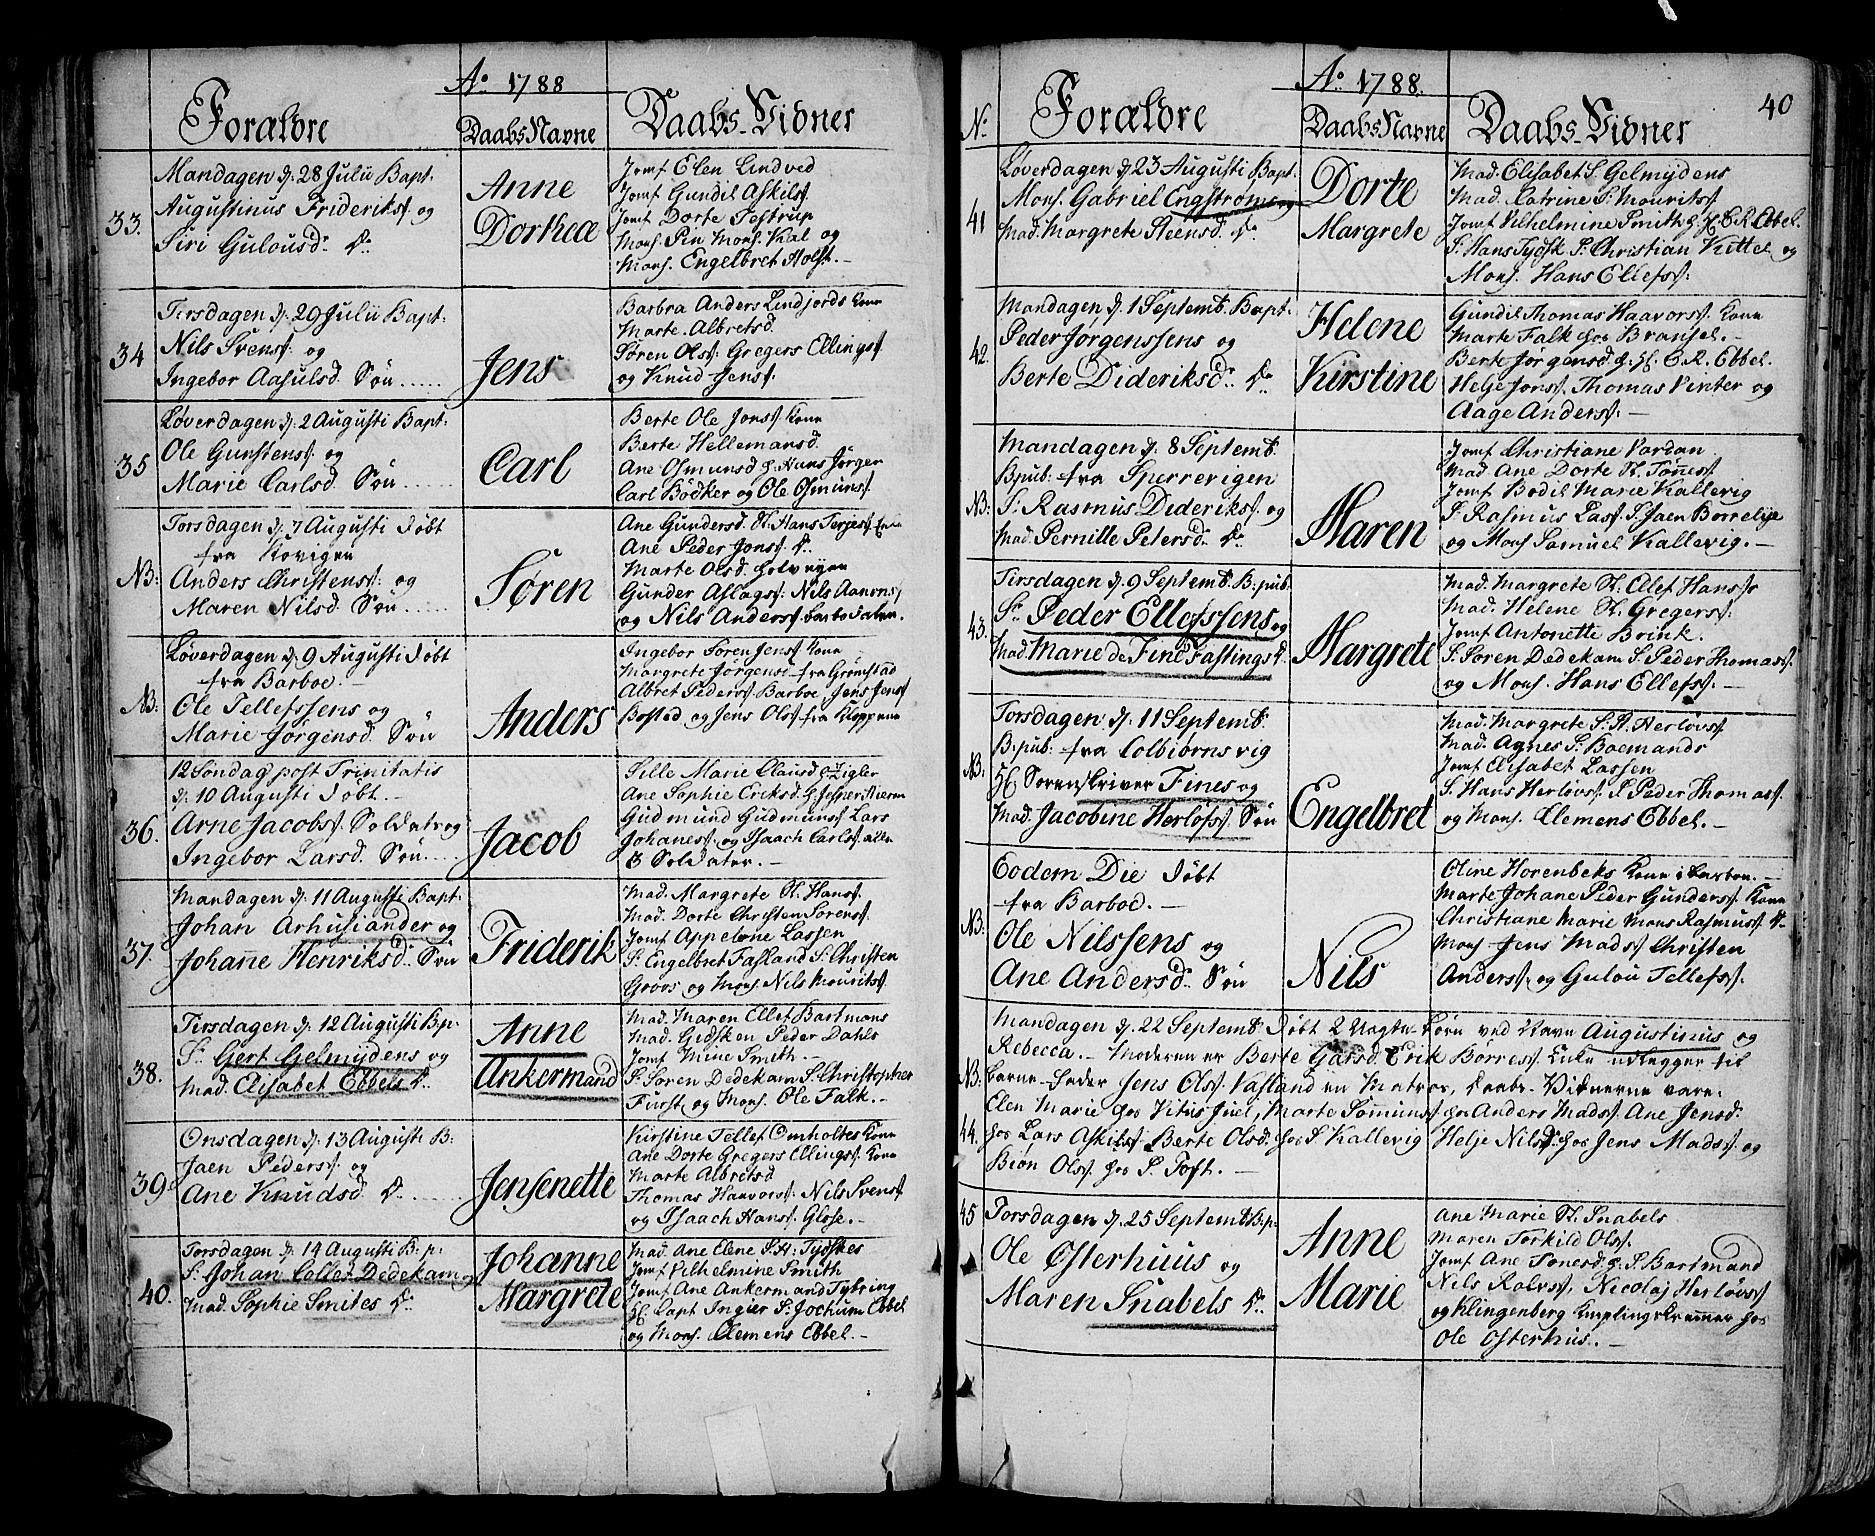 Aº 1788
Forældre
Daabs Navne
Daabs-Vidner
33.
Mandagen d. 28 Julii Bapt.
Augustinus Frideriks. og
Siri Gulousd. Dr.
Anne
Dorthea
Jomf Elen Lindved
Jomf Gundil Askils.
Jomf Dorte Testrup
Mons. Pin Mons. Kal og
Mons. Engelbret Holst.
34
Tirsdagen d. 29 Julii Bapt.
Nils Svens. og
Ingebor Aasulsd. Søn
Jens
Barbra Anders Lindjords Kone
Marte Albretsd.
Søren Ols. Gregers Ellings.
og Knud Jens.
35
Løverdagen d. 2 Augusti Bapt.
Ole Gunstens. og
Marie Carlsd. Søn
Carl
Berte Ole Jons. Kone
Berte Hellemansd.
Ane Osmunsd. Hans Jörger
Carl Bödker og Ole Osmuns.
NB:
Torsdagen d. 7 Augusti döbt
fra Kovigen
Anders Christens. og
Maren Nilsd. Søn
Søren
Ane Gundersd. H. Hans Terjes.
Ane Peder Jons. D.
Marte Olsd.
Gunder Aslags. Nils Aanons.
og Nils Anders.
NB.
Løverdagen d. 9 Augusti döbt
fra Barboe.
Ole Tellefssens og
Marie Jörgensd. Søn
Anders
Ingebor Sörensens Kone
Margrete Jörgens. fra Grömstad
Albret Peders. Barboe, Jens Jens.
Bosted og Jens Ols. fra Kloppene
36
12 Söndag post Trinitatis
d. 10 Augusti döbt.
Arne Jacobs. Soldat og
Ingebor Larsd. Søn
Jacob
Sille Marie Clausd. Zigler
Ane Sophie Eriksd. Jesper
Gudmund Gudmuns. Lars
Johanes. og Isaach Carls. alle
3 Soldater.
37.
Mandagen d. 11 Augusti Bapt.
Johan Arhusiander og
Johane Henriksd. Søn
Friderik
Mad. Margrete H. Hans.
Mad. Dorte Christen Sörens.
Jomf Appelone Lassen
S. Engelbret Fasland S. Christen
Groos og Mons. Nils Mourits.
38.
Tirsdagen d. 12 Augusti B.p.
Sr. Gert Gelmÿdens og
Mad. Elisabet Ebbels D.
Anne
Ankermand
Mad. Maren Ellef Bartmans
Mad. Gidsken Peder Dahls
Jomf Mine Smith.
S. Sören Dedekam S. Christopher
Furst og Mons. Ole Falk.
39
Onsdagen d. 13 Augusti B:
Jaen Peders. og
Ane Knudsd. D.
Jensenette
Kirstine Tellef Omholtes Kone
Ane Dorte Gregers Ellings. Kone
Marte Albretsd
Thomas Haavors. Nils Svens.
og Isaach Hans. Glose.
40.
Torsdagen d. 14 Augusti B.p:
S. Johan Collet Dedekam og
Mad. Sophie Smites D.
Johanne
Margrete
Mad. Ane Elene S. H. Tydskes
Jomf Vilhelmine Smith
Jomf Ane Ankermand Tybring
H. Capt Ingier S. Jochum Ebbel
og Mons. Clemens Ebbel.
40
Aº 1788.
N.
Forældre
Daabs Navne
Daabs-Vidner
41
Løverdagen d. 23 Augusti Bapt.
Mons. Gabriel Engström og
Mad. Margrete Steensd. D.
Dorte
Margrete
Mad. Elisabet S. Gelmÿdens
Mad. Catrine S. Mourits.
Jomf Vilhelmine Smith H. C. R. Ebbel
S. Hans Tydsk S. Christian Kittel og
Mons. Hans Ellefs.
42.
Mandagen d. 1 Septemb. Bapt.
Peder Jörgenssens og
Berte Dideriksd. D.
Helene
Kirstine
Gundil Thomas Haavors. Kone
Marte Falk hos Bransel.
Berte Jörgensd. H. C. R. Ebbel.
Helje Jons. Thomas Venter og
Aage Anders.
NB:
Mandagen d. 8 Septemb.
B:pub. fra Sperrevigen
S. Rasmus Dideriks. og
Mad. Pernille Petersd. D.
Maren
Jomf Christiane Vordan
Mad. Ane Dorte H. Tönnes.
Jomf Bodil Marie Kallevig
S. Rasmus Las. S. Jaen Borrelije
og Mons Samuel Kallevig.
43.
Tirsdagen d. 9 Septemb. B:pub.
Sr. Peder Ellefssens og
Mad. Marie de Fine Fastings D.
Margrete
Mad. Margrete H. Olef Hans.
Mad. Helene H. Gregers.
Jomf Antonette Brink.
S. Sören Dedekam S. Peder Thomas.
og Mons. Hans Ellefs.
NB.
Torsdagen d. 11 Septemb.
B:pub. fra Colbiörnsvig
H. Sorenskriver Fines og
Mad. Jacobine Herlofs. Søn
Engelbret
Mad. Margrete S. A. Herlövs.
Mad. Agnes S. Boemands
Jomf Elisabet Lassen
S. Hans Herlövs. S. Peder Thomas.
og Mons. Clemens Ebbel.
NB.
Eodem Die döbt
fra Barboe.
Ole Nilssens og
Ane Andersd. Søn
Nils
Oline Horenbeks Kone i
Marte Johane Peder Gunders. Kone
Christiane Marie Mons Rasmus. D.
Mons Jens Mads. Christen
Anders. og Gulou Tellefs.
NB.
44.
Mandagen d. 22 Septemb. döbt 2 Uægte Börn ved Navn Augustinus og
Rebecca. Moderen er Berte Garsd. Erik Börres. Enke udlegger til
Barne-Fader Jens Ols. Vasland en Matros, Daabs-Vidnerne vare:
Elen Marie hos Vitus Juel, Marte Somuns. hos Anders Mads. Ane Jensd.
hos Lars Askils. Berte Olsd. hos S. Kallevig Helje Nils. hos Jens Mads. og
Biön Ols. hos P. Toft.
45
Torsdagen d. 25 Septemb. B.p.
Ole Osterhuus og
Maren Snabels D.
Anne
Marie
Ane Marie H. Snabels
Maren Torkild Ols.
Jomf Ane Tonesd. S. Bartmand
Nils Ralvs. Nicolaj Herlövs.
og Klingenberg hos
Ole Osterhus.